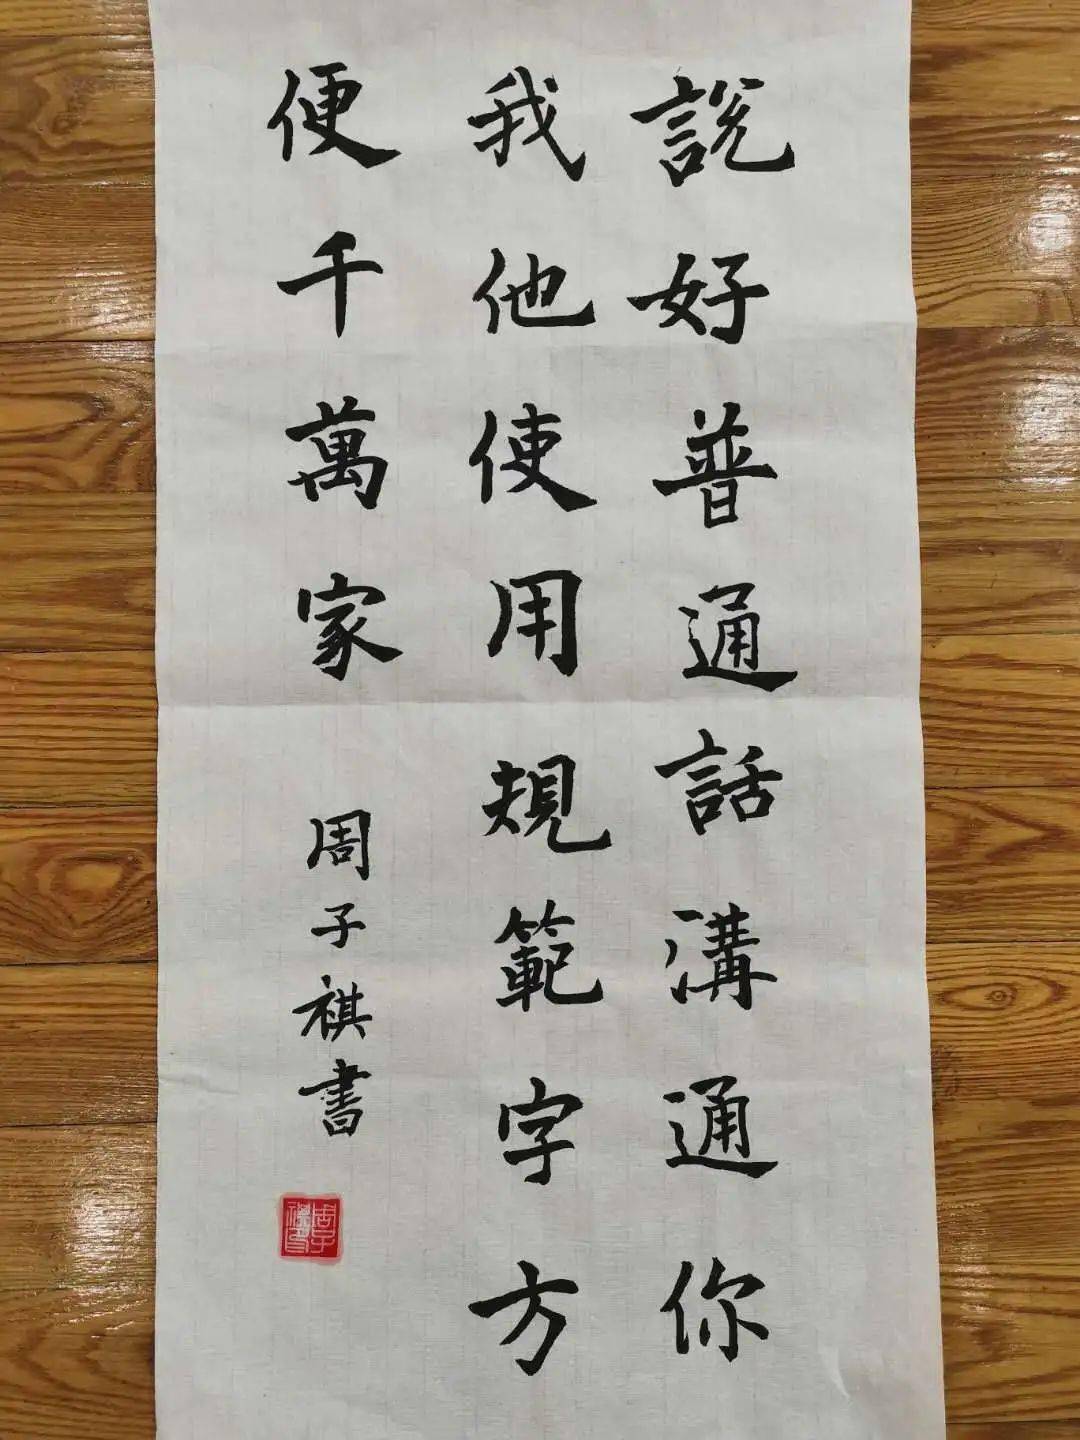 説好普通話溝通你
我他使用規範字方
便千萬家
周子祺書
周子祺印